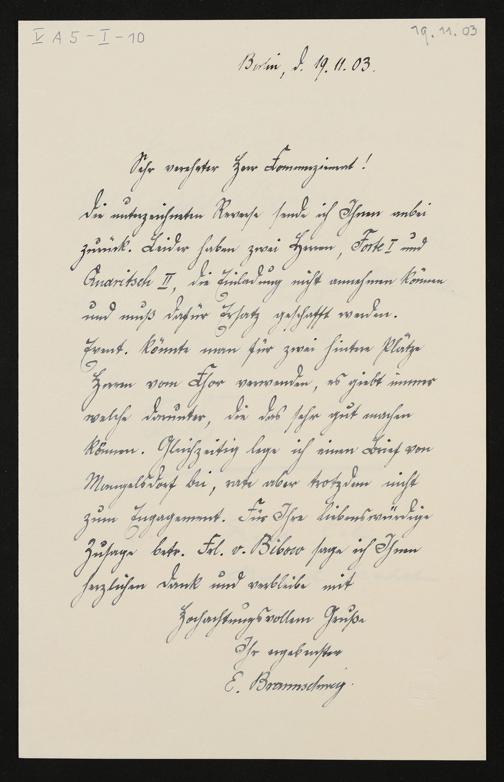 V A 5 - I - 10
19.11.03
Berlin, d. 19.11.03.
Sehr verehrter Herr Commerzienrat!
Die unterzeichneten Reverse sende ich Ihnen anbei
zurück. Leider haben zwei Herren, Forte I und
Quaritsch II, die Einladung nicht annehmen können
und muß dafür Ersatz geschafft werden.
Event. könnte man für zwei hintere Plätze
Herren vom Chor verwenden, es giebt immer
welche darunter, die das sehr gut machen
können. Gleichzeitig lege ich einen Brief von
Mangelsdorf bei, rate aber trotzdem nicht
zum Engagement. Für Ihre liebenswürdige
Zusage betr. Frl. v. Bibow sage ich Ihnen
herzlichen Dank und verbleibe mit
Hochachtungsvollem Gruße
Ihr ergebenster
E. Braunschweig.